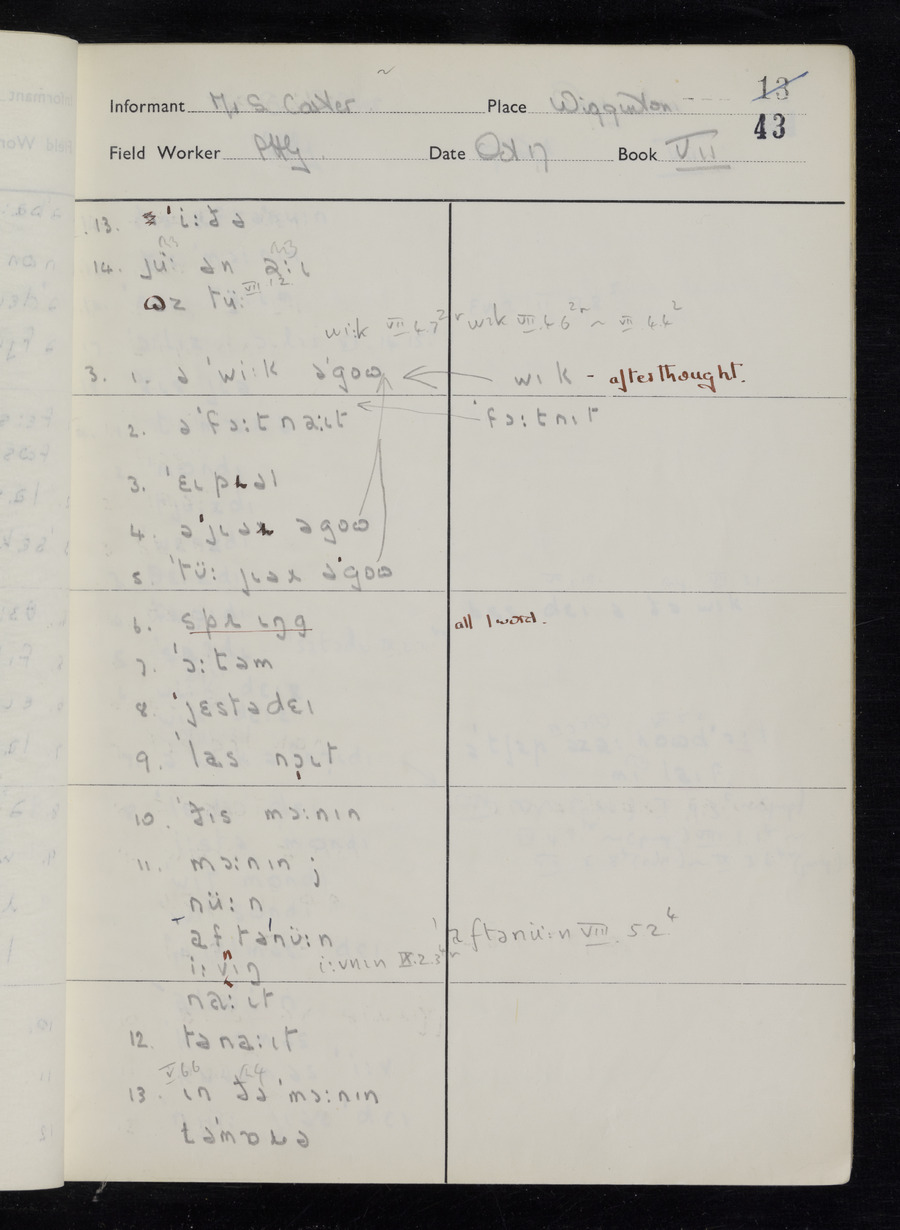 13
Informant Mr S Coster Place Wigginton
43
Field Worker PHG Date Oct 17 Book VII
13. ˈiːðə
14. jüː ən aːɩ
ɷz tüː VII 12
wiːk VII.4.7² wɩk VII.4.6² ~ VII.4.4²
3. 1. ə ˈwiːk əˈgoɷ wɩk - afterthought.
2. ə ˈfɔːtnaːɩt ˈfɔːtnɩt
3. ˈɛɩpɹəl
4. əˈjɩəɹ əgoɷ
5. ˈtüː jɩəɹ əˈgoɷ
6. spɹɩŋg all 1 word.
7. ˈɔːtəm
8. ˈjɛstədɛɩ
9. ˈlas nɔ̣ɩt
10. ˈðɩs mɔːnɩn
11. mɔːnɩn ;
nüːn
aftəˈnüːn ˈaftənüːn VIII.5.2⁴
iːvnɩŋ iːvnɩn IX.2.3
naːɩt
12. tənaːɩt
V.6.6
13. ɩn ðə ˈmɔːnɩn
təˈmɒɹə